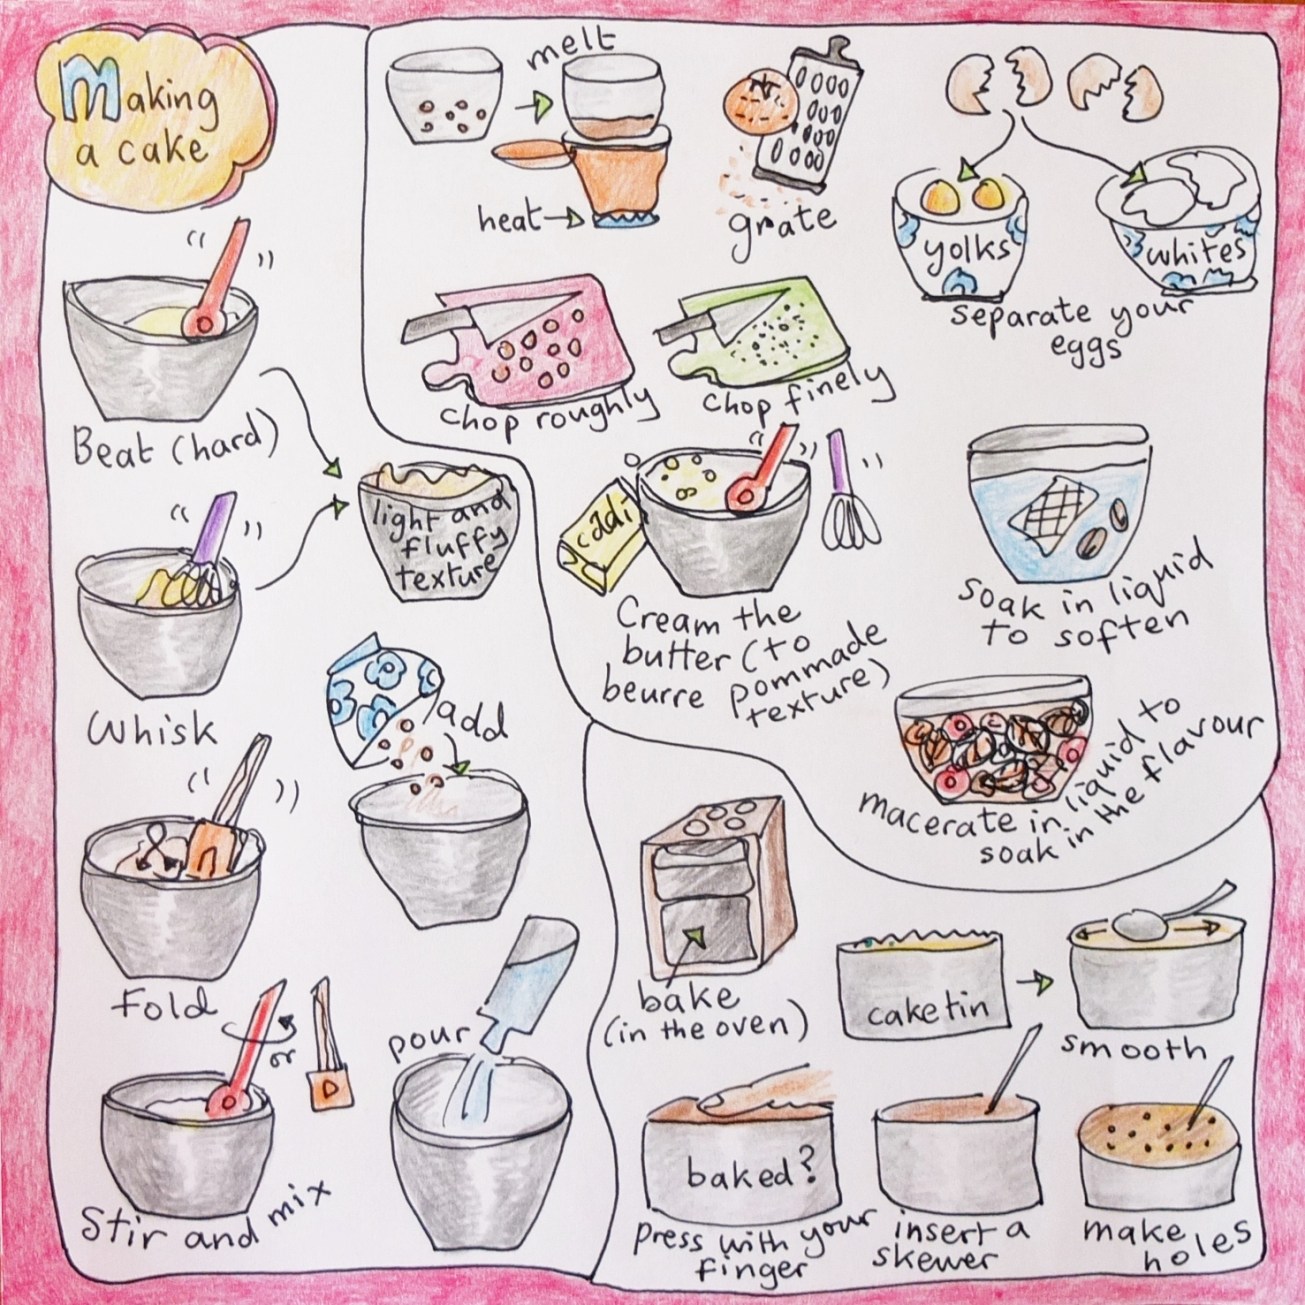 Making
a cake
Beat (hard)
light and
fluffy
texture
Whisk
add
Fold
or
Stir and mix
pour
melt
heat
grate
yolks
whites
separate your
eggs
chop roughly
chop finely
Cream the
butter (to
beurre pommade
texture)
soak in liquid
to soften
macerate in liquid to
soak in the flavour
bake
(in the oven)
cake tin
smooth
baked?
press with your
finger
insert a
skewer
make
holes